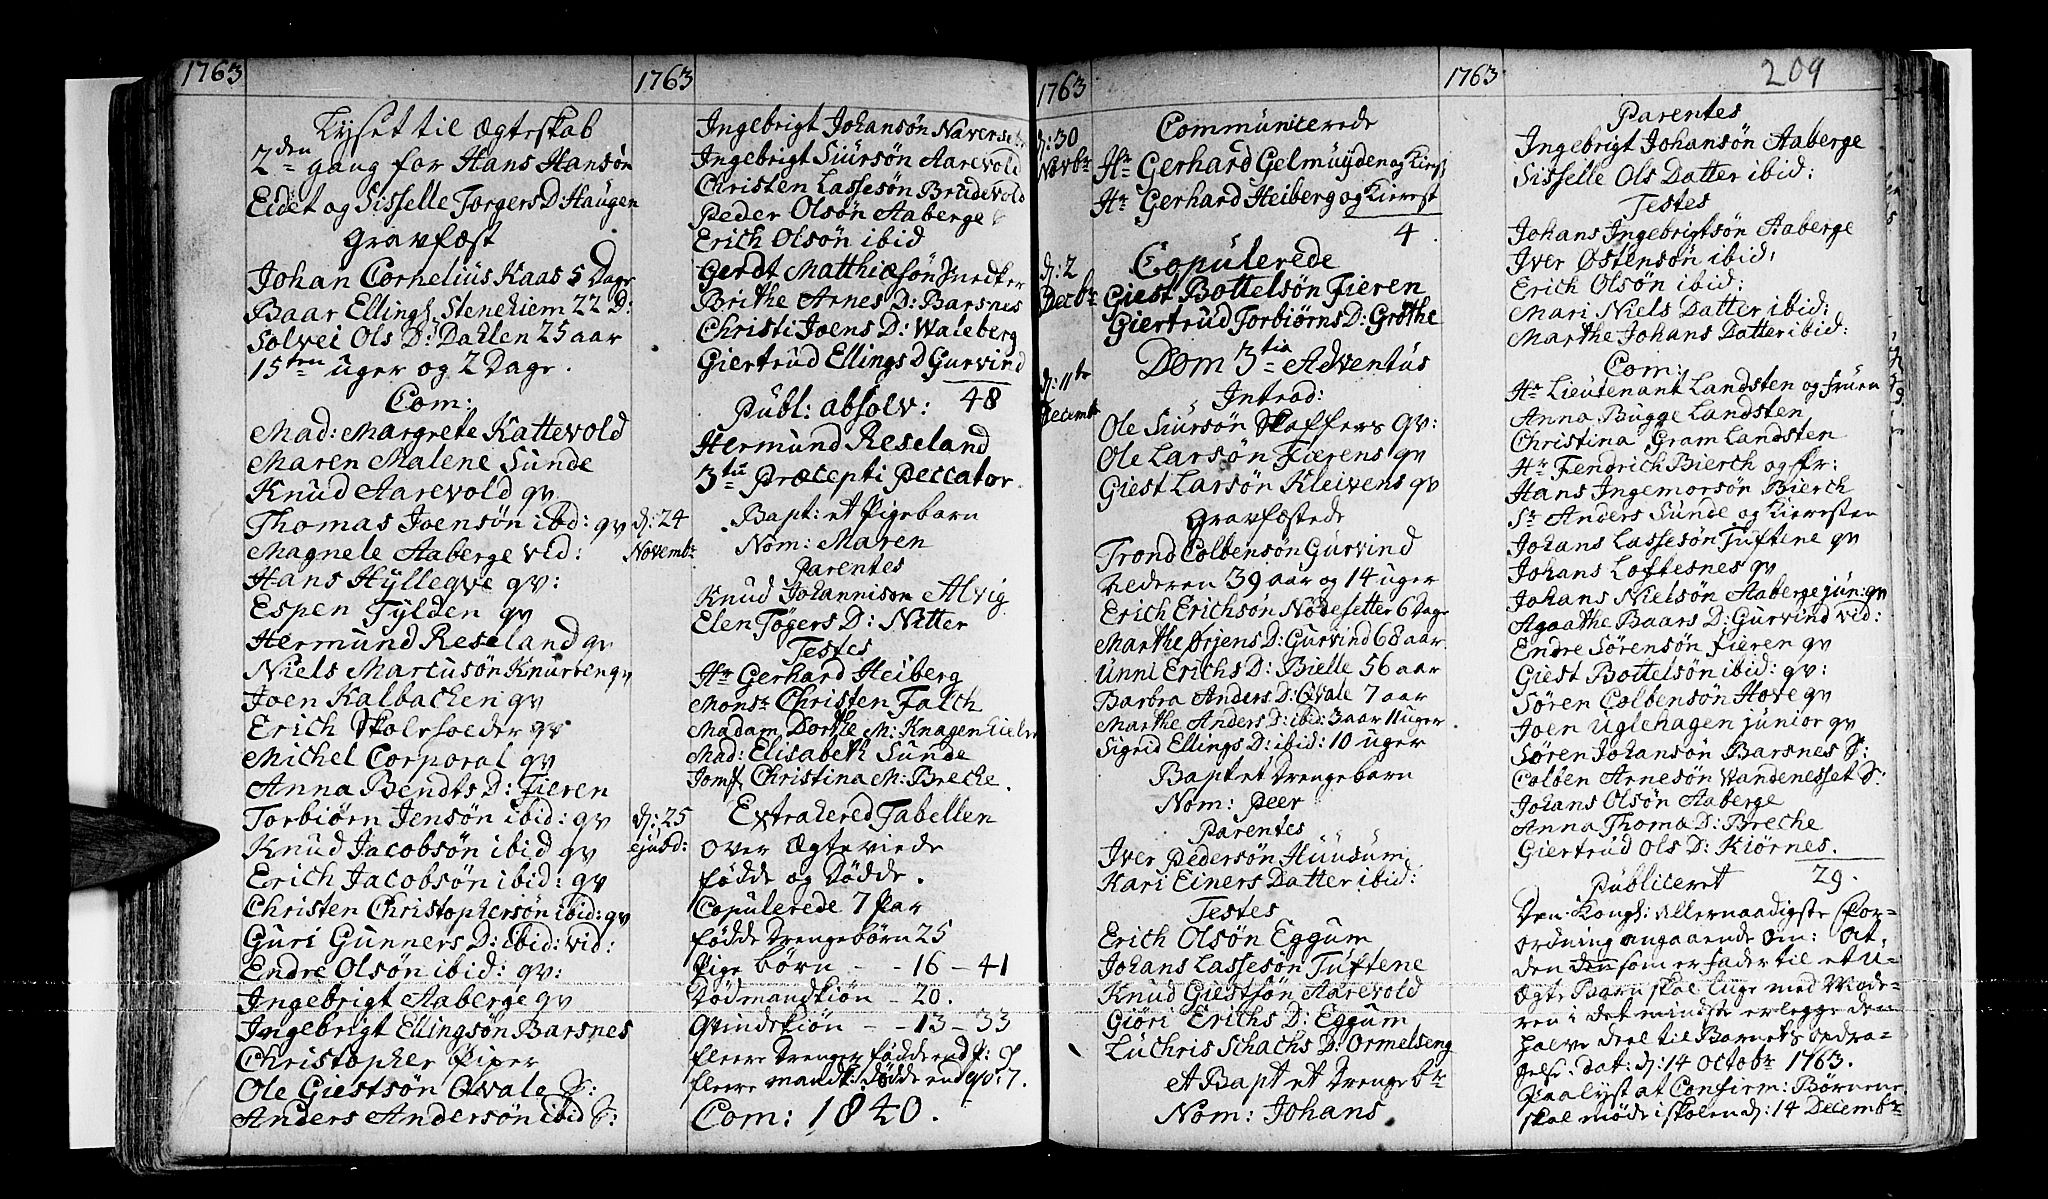 1763
Lyset til Ægteskab
2den gang for Hans Hansøn
Eidet og Sisselle Torgers D: Haugen
Gravfæst
Johan Cornelius Kaas 5 Dage
Baar Ellings. Stenehiem 22 D:
Solvei Ols D: Dahlen 25 aar
15ten uger og 2 Dage.
Com:
Mad: Margrete Kattevold
Maren Malene Sunde
Knud Aarevold qv
Thomas Joensøn ibd: qv
Magnele Aaberge vid:
Hans Hyllegve qv:
Espen Tylden qv
Hermund Reseland qv
Niels Marcusøn Knurten qv
Joen Kalbachen qv
Erich qv
Michel Corporal qv
Anna Bendts D: Fieren
Torbiørn Jensøn ibid: qv
Knud Jacobsøn ibid qv
Erich Jacobsøn ibid: qv
Christen Christophersøn ibid: qv
Guri Gunners D: ibid: vid:
Endre Olsøn ibid: qv:
Ingebrigt Aaberge qv
Ingebrigt Ellingsøn Barsnes
Christopher Piper
Ole Giestsøn Qvale S:
Anders Andersøn ibid S:
1763
Ingebrigt Johansøn
Ingebrigt Siursøn Aarevold
Christen Lassesøn Brudevold
Peder Olsøn Aaberge
Erich Olsøn ibid
Gerdt Matthiesøn Snedker
Brithe Arnes D: Barsnes
Christi Joens D: Waleberg
Giertrud Ellings D Gurvind
48
Publ: absolv:
Hermund Reseland
3tii Præcepti Peccator
d: 24 Novembr
Bapt: et Pigebarn
Nom: Maren
Parentes
Knud Johannison Alvig
Elen Tøgers D: Nitter
Testes
Hr Gerhard Heiberg
Monsr Christen Falch
Madam Dorthe M: Knagenhielm
Mad: Elisabeth Sunde
Jomf Christina M: Breche.
d: 25 ejusd:
Extradered Tabellen
over Ægteviede
fødde og Dødde.
Copulerede 7 Par
fødde Drengebørn 25
Pige børn - - 16 - 41
Dødmandkiøn - 20.
Qvindekiøn - - 13 - 33
fleere Drenger fødde end P: 9
fleere mandk: dødde end qv: 7.
Com: 1840.
1763
d: 30 Novbr
Communicerede
Hr Gerhard Gelmuyden og Kierst
Hr Gerhard Heiberg og Kierest
4
d: 2 Decbr
Copulerede
Giest Bottelsøn Fieren
Giertrud Torbiørns D: Grøthe
d: 11te Decembr
Dom 3tia Adventus
Introd:
Ole Siursøn Skaffers qv:
Ole Larsøn Fierens qv
Giest Larsøn Kleivens qv
Gravfæstede
Trond Colbensøn Gurvind
Hederen 39 aar og 14 uger
Erich Erichsøn Nødesetter 6 Dage
Marthe Ørjens D: Gurvind 68 aar
Unni Erichs D: Bielle 56 aar
Barbra Anders D: Qvale 7 aar
Marthe Anders D: ibid: 3 aar 11 uger
Sigrid Ellings D: ibid: 10 uger
Bapt et Drengebarn
Nom: Peer
Parentes
Iver Pedersøn Huusum
Kari Einers Datter ibid:
Testes
Erich Olsøn Eggum
Johans Lassesøn Tuftene
Knud Giestsøn Aarevold
Giøri Erichs D: Eggum
Luchris Schachs D: Ormelseng
et Bapt et Drengebr
Nom: Johans
1763
209
Parentes
Ingebrigt Johansøn Aaberge
Sisselle Ols Datter ibid:
Testes
Johans Ingebrigtsøn Aaberge
Iver Østensøn ibid:
Erich Olsøn ibid:
Mari Niels Datter ibid:
Marthe Johans Datter ibid:
Com:
Hr Lieutenant Landsten og Fruen
Anna Bugge Landsten
Christina Gram Landsten
Hr Fendrich Bierch og Fr:
Hans Ingemorsøn Bierch
Sr Anders Sunde og Kieresten
Johans Lassesøn Tuftene qv
Johans Loftesnes qv
Johans Nielsøn Aaberge jun: qv
Agaathe Baars D: Gurvind vid:
Endre Sørensøn Fieren qv
Giest Bottelsøn ibid: qv:
Søren Colbensøn Hove qv
Joen Uglehagen junior qv
Søren Johansøn Barsnes S:
Colben Arnesøn S:
Johans Olsøn Aaberge
Anna Thoma D: Breche
Giertrud Ols D: Kiørnes.
29.
Publiceret
Den Kongl: Allernaadigste For-
ordning angaaende om: at
den som er fader til et U-
Ægte Barn skal liige med Mode-
ren i det mindste erlegge den
halve deel til Barnets opdra-
gelse: dat: d: 14 Octobr 1763.
Paalyst at Confirm: Børnene
skal møde i skolen d: 14 Decembr